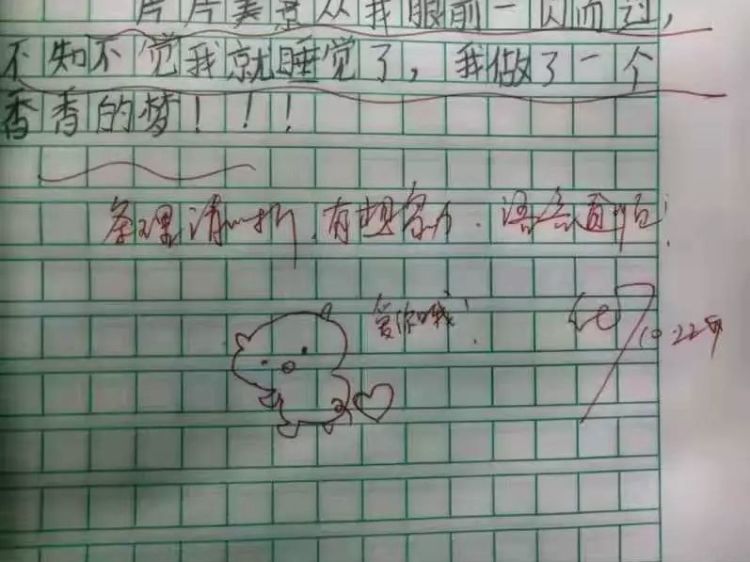 片片美景从我眼前一闪而过，
不知不觉我就睡觉了，我做了一个
香香的梦！！！
条理清晰，有想象力，语句通顺！
爱你哦！
优
10.22